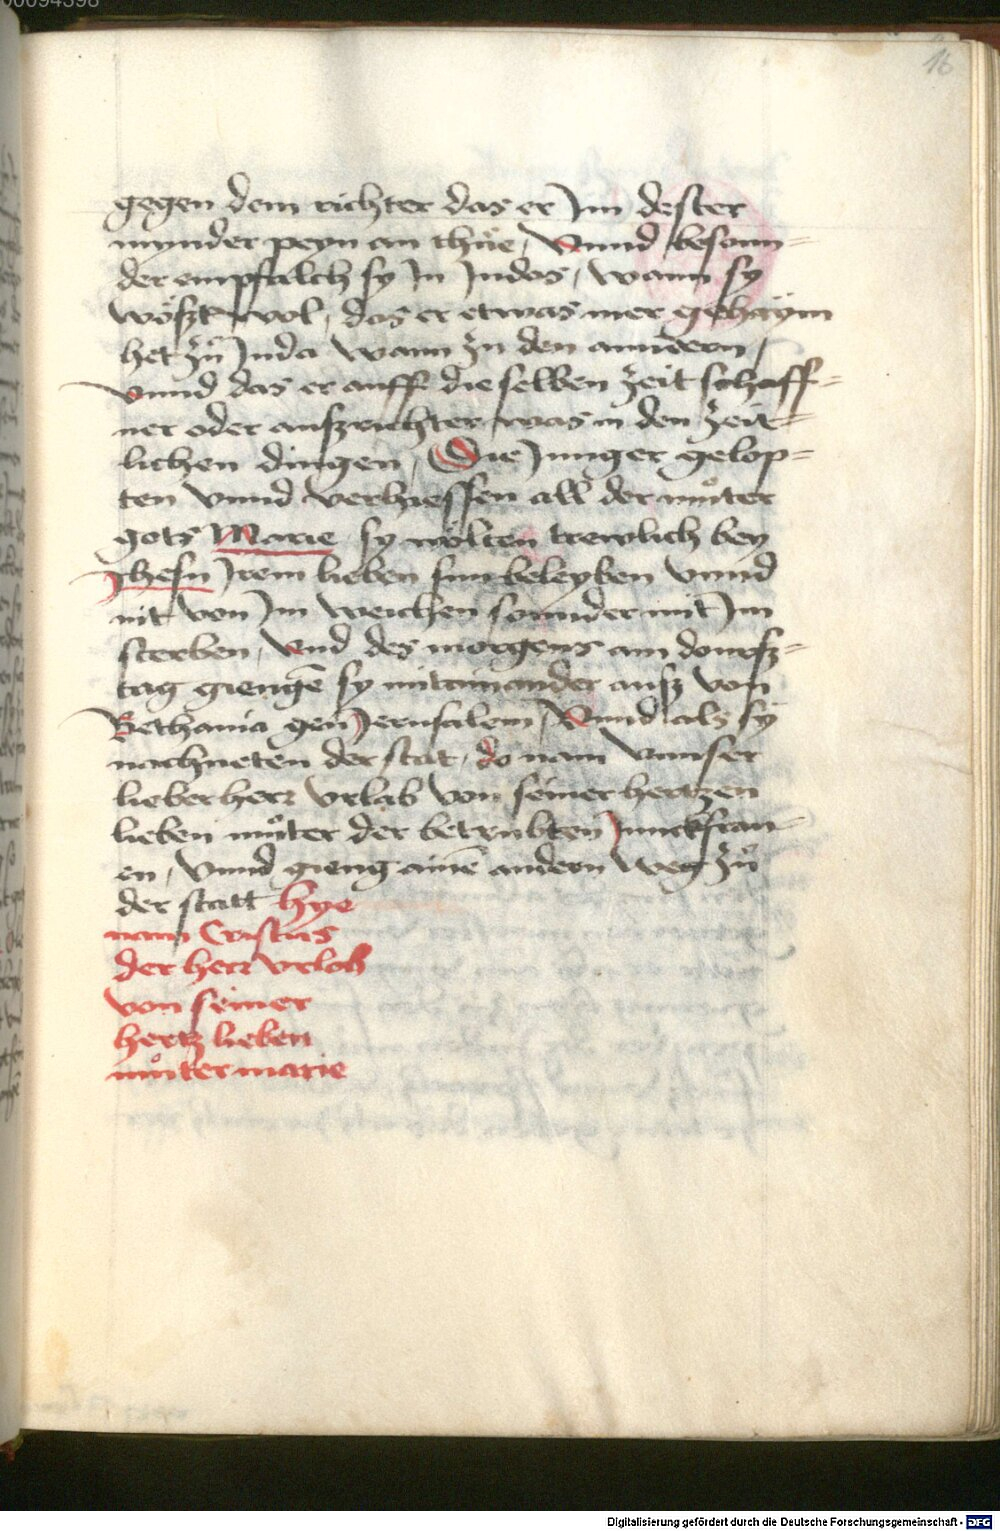 00094398
16
gegen dem richter das er Jm dester
mynder peyn an thüe, Vnnd besonn=
der empfalch sy Jn Judas, wann sy
wöszt wol, das er etwas mer gehaÿm
het zů Juda wann zu den anndern,
vnnd das er auff die selben zeit schaff=
ner oder auszrichter was in den zeit=
lichen dingen, Die Junger gelop=
ten vnnd verhiessen all der můter
gots Marie sy wölten trewlich bey
Jhesu Jrem lieben sun beleyben vnnd
nit von Jm weichen sonnder mit Jm
sterben, Vnd des morgens am donrsz=
tag giengē sy mitainander ausz von
Bethania gen Jerusalem, Vnnd als sÿ
nachneten der stat, do nam vnnser
lieber herr vrlab von seiner hertzen
lieben můter der betrübten Junckfraw=
en, Vnnd gieng ainē andern weg zů
der statt hye
nam Cristus
der herr vrlob
von seiner
hertz lieben
můter marie
Digitalisierung gefördert durch die Deutsche Forschungsgemeinschaft - DFG